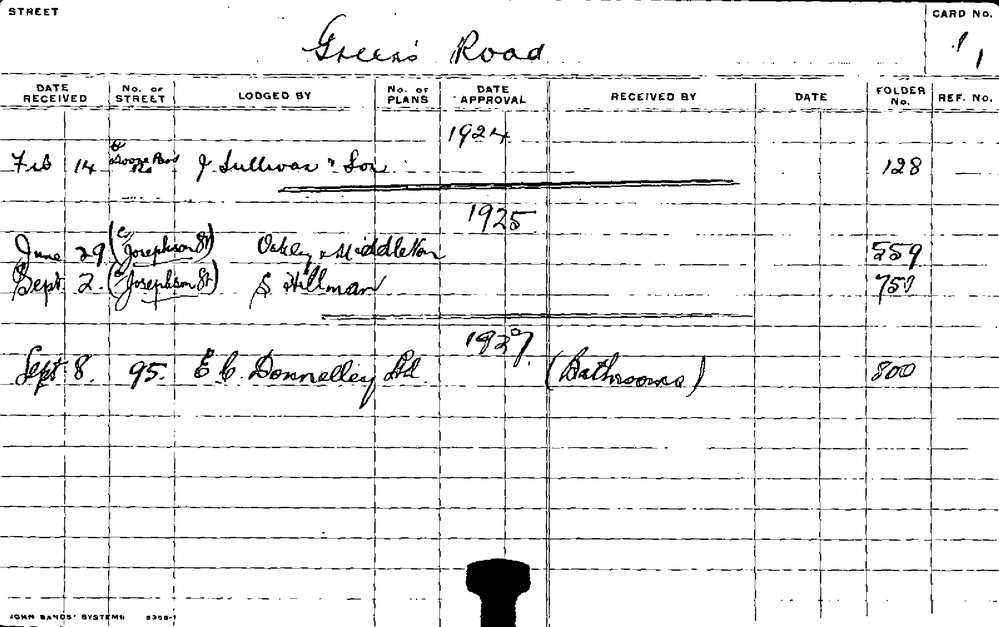 STREET
CARD NO.
Greens Road
1
DATE RECEIVED No. OF STREET LODGED BY No. OF PLANS DATE APPROVAL RECEIVED BY DATE FOLDER No. REF. No.
1924
Feb 14 J Sullivan & Son 128
1925
June 29 (C/ Josephson St) Oatley & Middleton 559
Sept 2. (C/ Josephson St) S Hillman 750
1927
Sept 8. 95. E C. Donnelley Ltd (Bathrooms) 800
JOHN SANDS' SYSTEMS